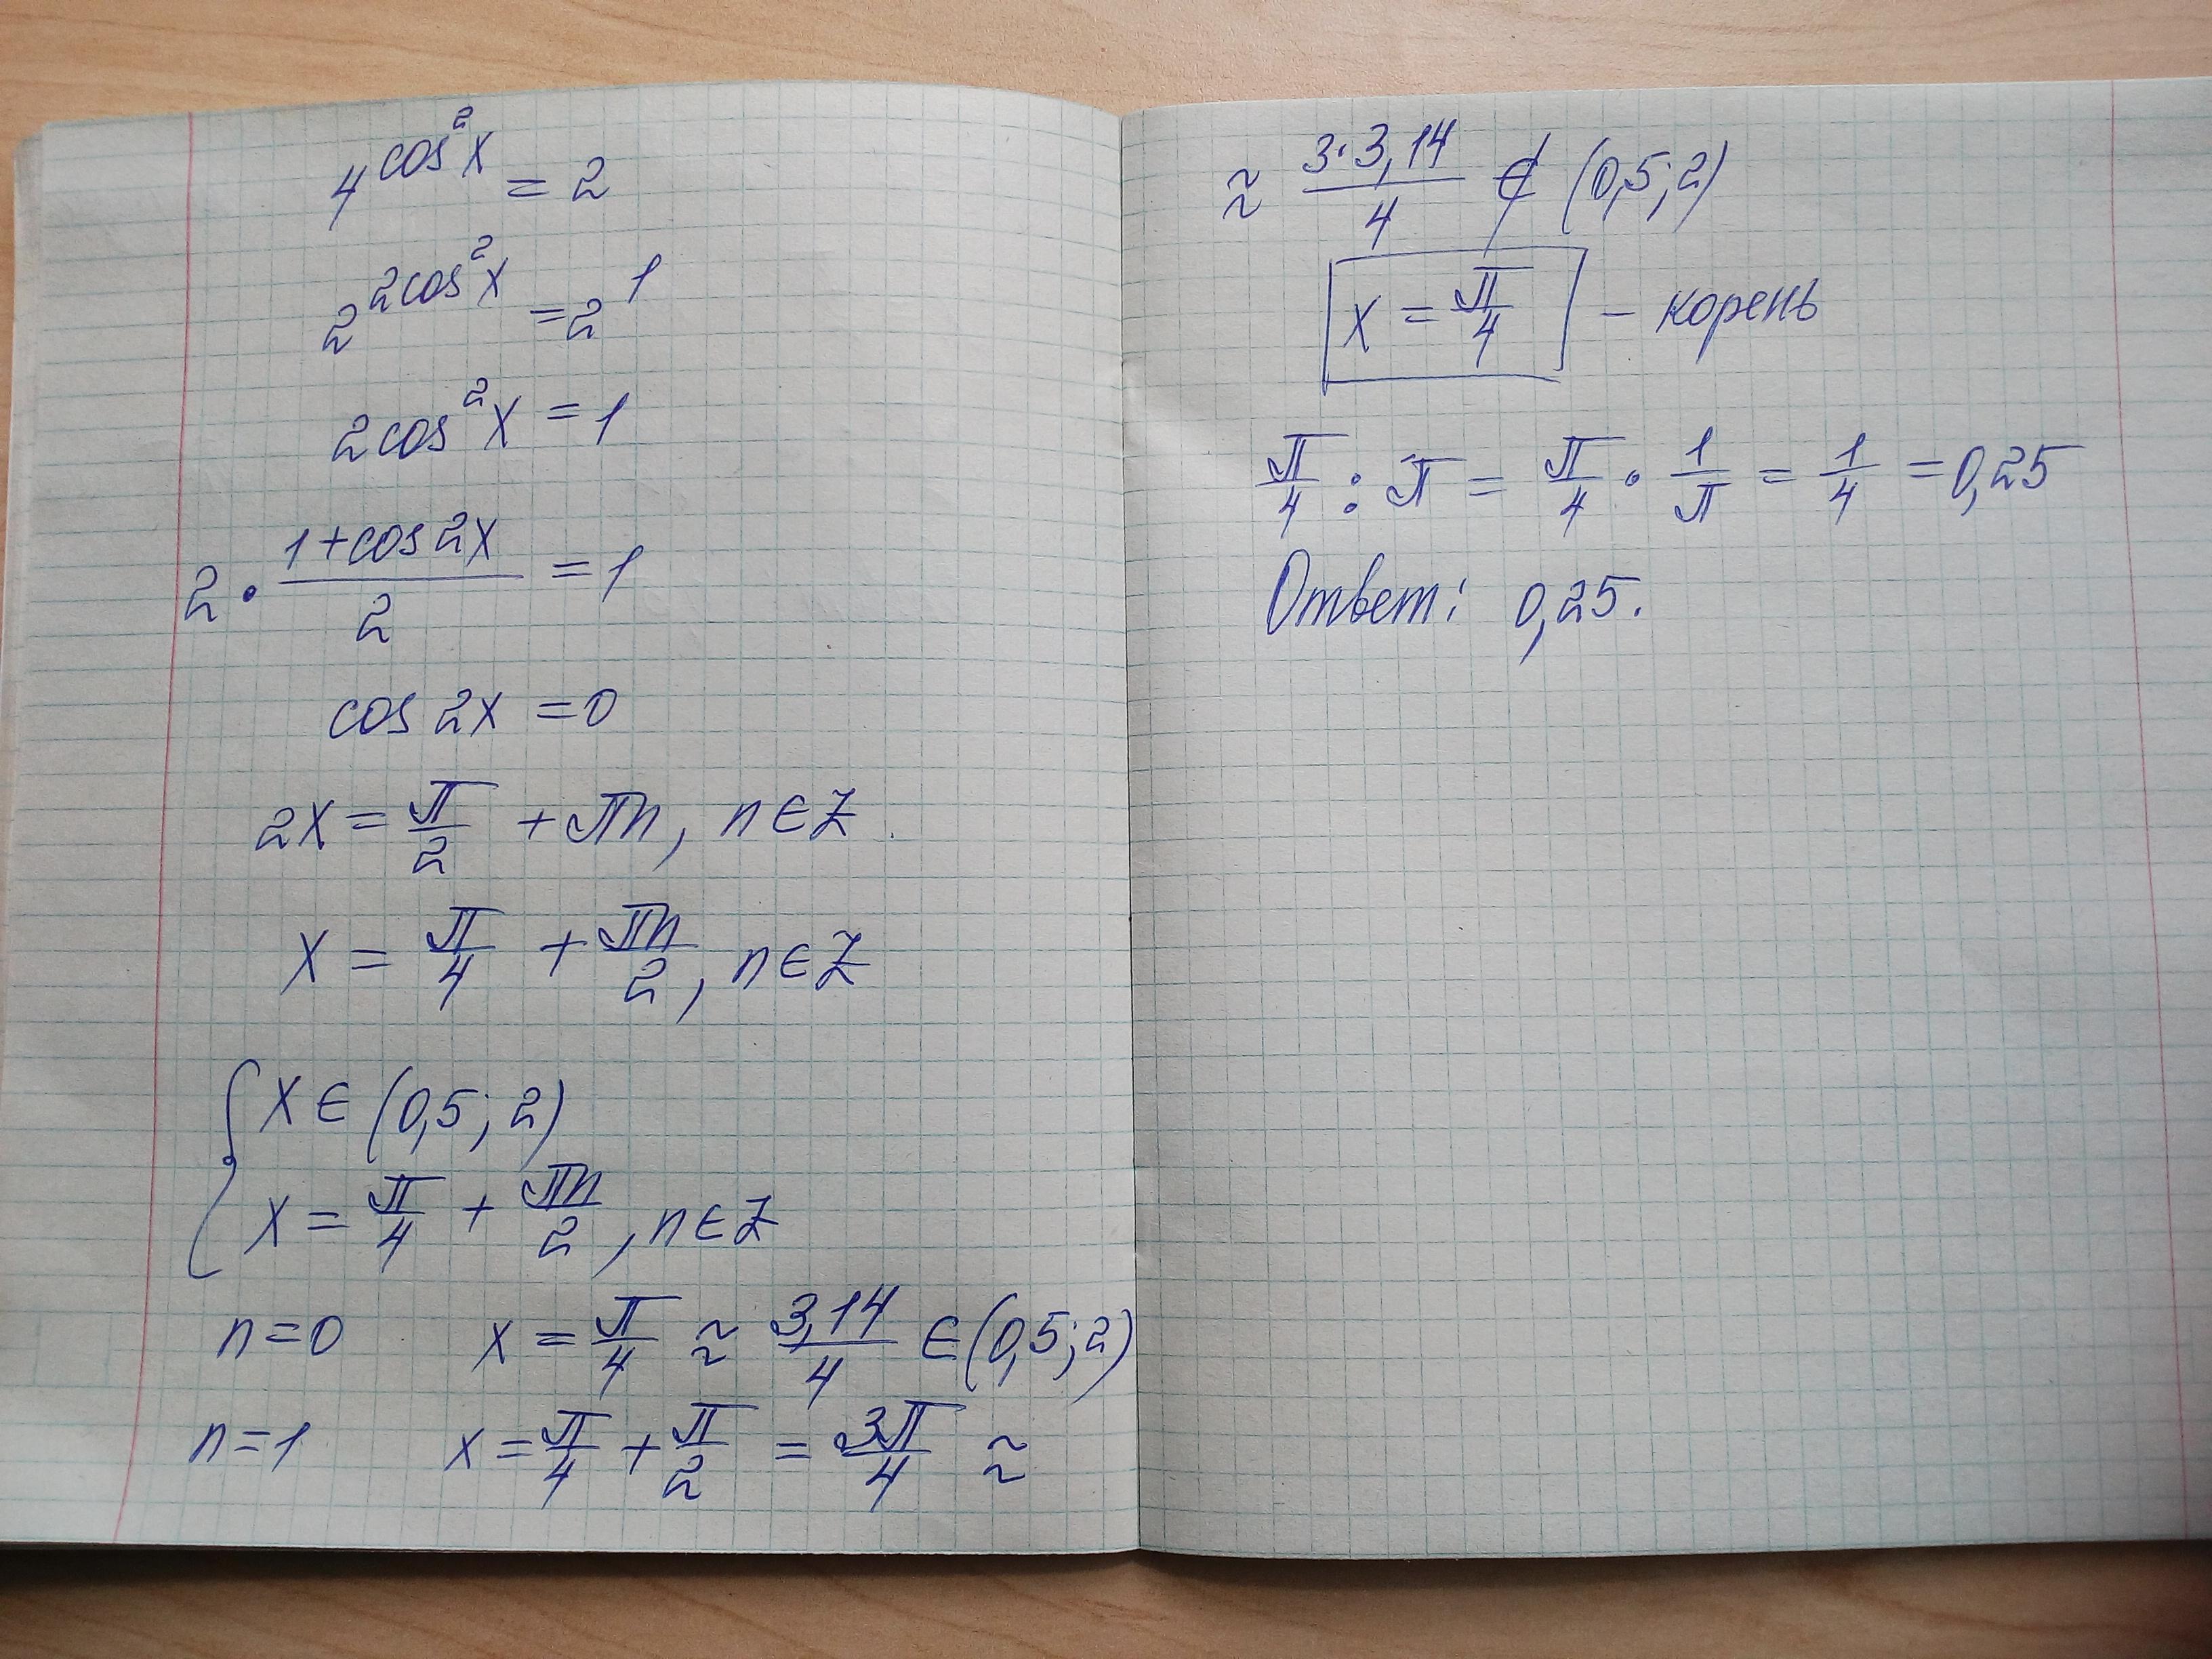 4^cos²x = 2
2^2cos²x = 2^1
2cos²x = 1
2 · (1+cos2x)/2 = 1
cos 2x = 0
2x = π/2 + πn, n∈Z
x = π/4 + πn/2, n∈Z
{ x ∈ (0,5; 2)
x = π/4 + πn/2, n∈Z
n=0 x = π/4 ≈ 3,14/4 ∈ (0,5; 2)
n=1 x = π/4 + π/2 = 3π/4 ≈
≈ 3·3,14/4 ∉ (0,5; 2)
x = π/4 – корень
π/4 : π = π/4 · 1/π = 1/4 = 0,25
Ответ: 0,25.